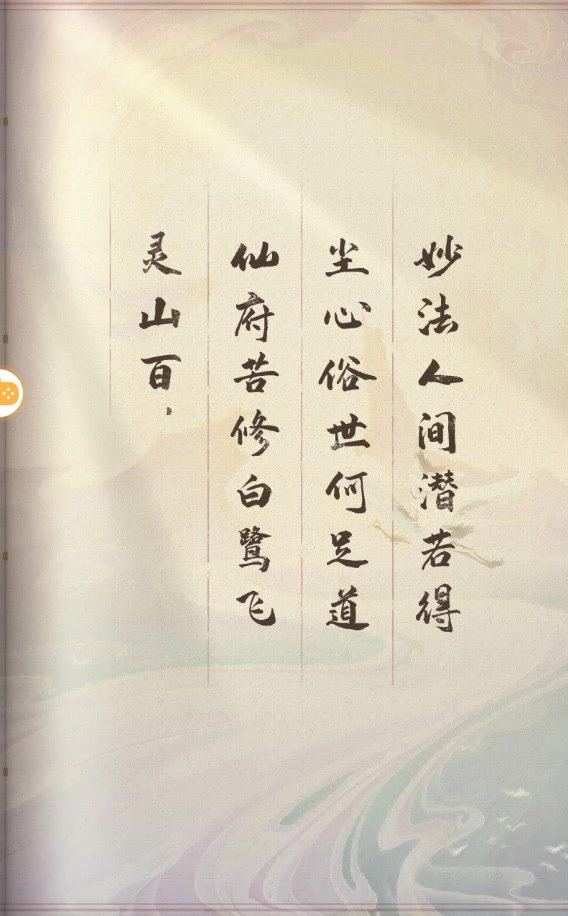 妙法人间潜若得
尘心俗世何足道
仙府苦修白鹭飞
灵山百，